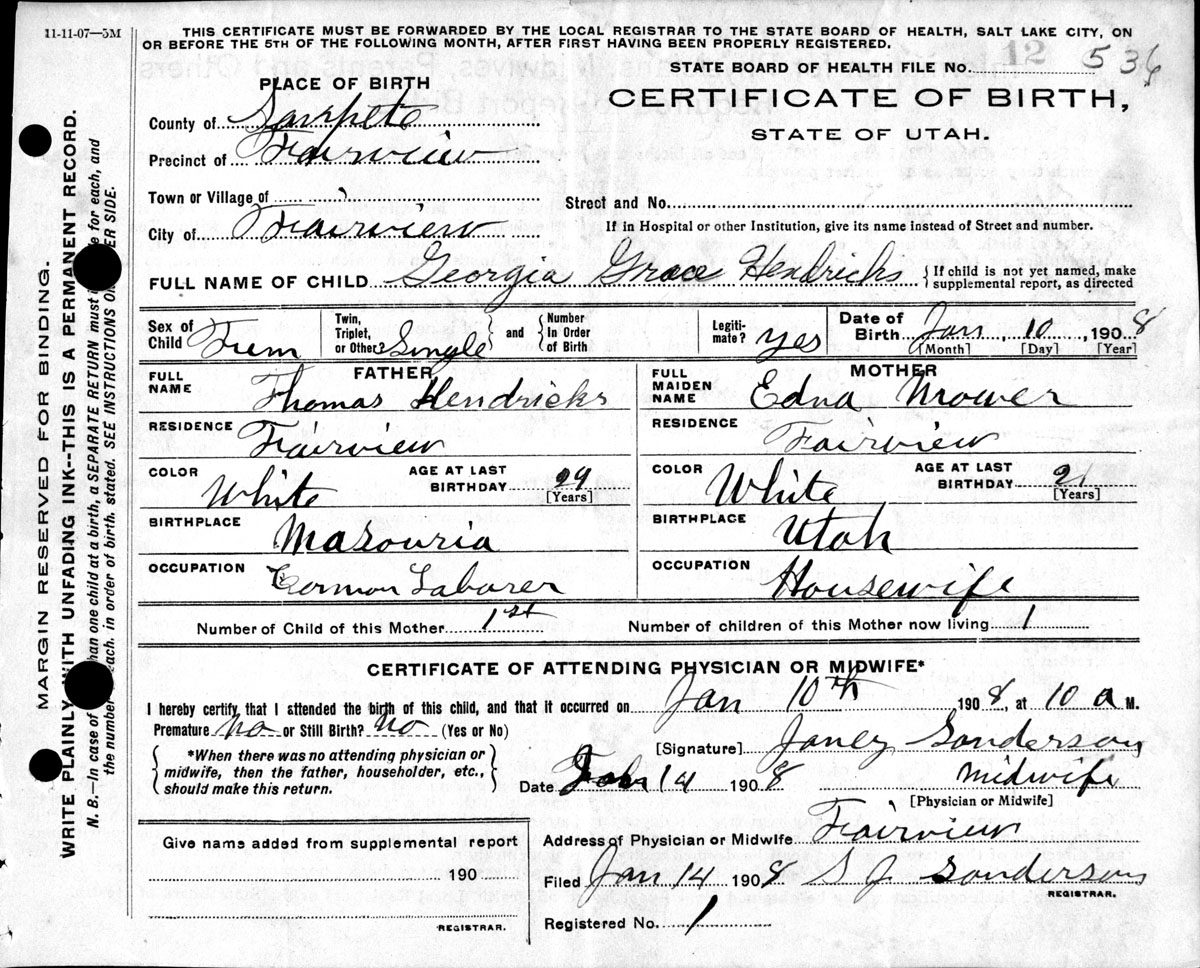 11-11-07—5M
THIS CERTIFICATE MUST BE FORWARDED BY THE LOCAL REGISTRAR TO THE STATE BOARD OF HEALTH, SALT LAKE CITY, ON
OR BEFORE THE 5TH OF THE FOLLOWING MONTH, AFTER FIRST HAVING BEEN PROPERLY REGISTERED.
STATE BOARD OF HEALTH FILE NO. 12 536
PLACE OF BIRTH
CERTIFICATE OF BIRTH,
STATE OF UTAH.
County of Sanpete
Precinct of Fairview
Town or Village of
Street and No.
City of Fairview
If in Hospital or other Institution, give its name instead of Street and number.
FULL NAME OF CHILD Georgia Grace Hendricks {If child is not yet named, make
supplemental report, as directed
Sex of Child Fem
Twin, Triplet, or Other? Single and Number In Order of Birth
Legiti-mate? yes
Date of Birth Jan 10, 1908
[Month] [Day] [Year]
FATHER
FULL NAME Thomas Hendricks
MOTHER
FULL MAIDEN NAME Edna Mower
RESIDENCE Fairview
RESIDENCE Fairview
COLOR White
AGE AT LAST BIRTHDAY 29 [Years]
COLOR White
AGE AT LAST BIRTHDAY 21 [Years]
BIRTHPLACE Masouria
BIRTHPLACE Utah
OCCUPATION Common Laborer
OCCUPATION Housewife
Number of Child of this Mother 1st
Number of children of this Mother now living 1
CERTIFICATE OF ATTENDING PHYSICIAN OR MIDWIFE*
I hereby certify, that I attended the birth of this child, and that it occurred on Jan 10th 1908, at 10 a M.
Premature no or Still Birth? no (Yes or No)
*When there was no attending physician or
midwife, then the father, householder, etc.,
should make this return.
[Signature] Janey Sanderson
Date 14 1908 Midwife
[Physician or Midwife]
Address of Physician or Midwife Fairview
Filed Jan 14 1908 S J Sanderson
REGISTRAR.
Registered No. 1
Give name added from supplemental report
190
REGISTRAR.
MARGIN RESERVED FOR BINDING.
WRITE PLAINLY WITH UNFADING INK--THIS IS A PERMANENT RECORD.
N. B.—In case of than one child at a birth, a SEPARATE RETURN must for each, and
the number each, in order of birth, stated. SEE INSTRUCTIONS ON SIDE.